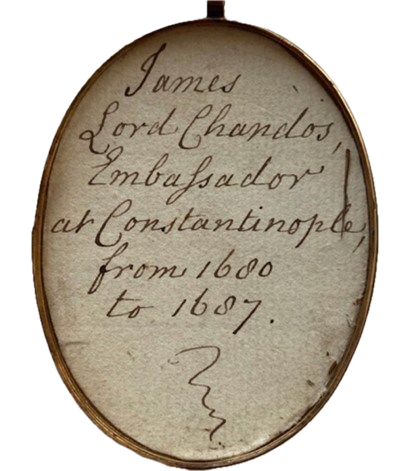 James
Lord Chandos,
Embaſsador
at Constantinople,
from 1680
to 1687.